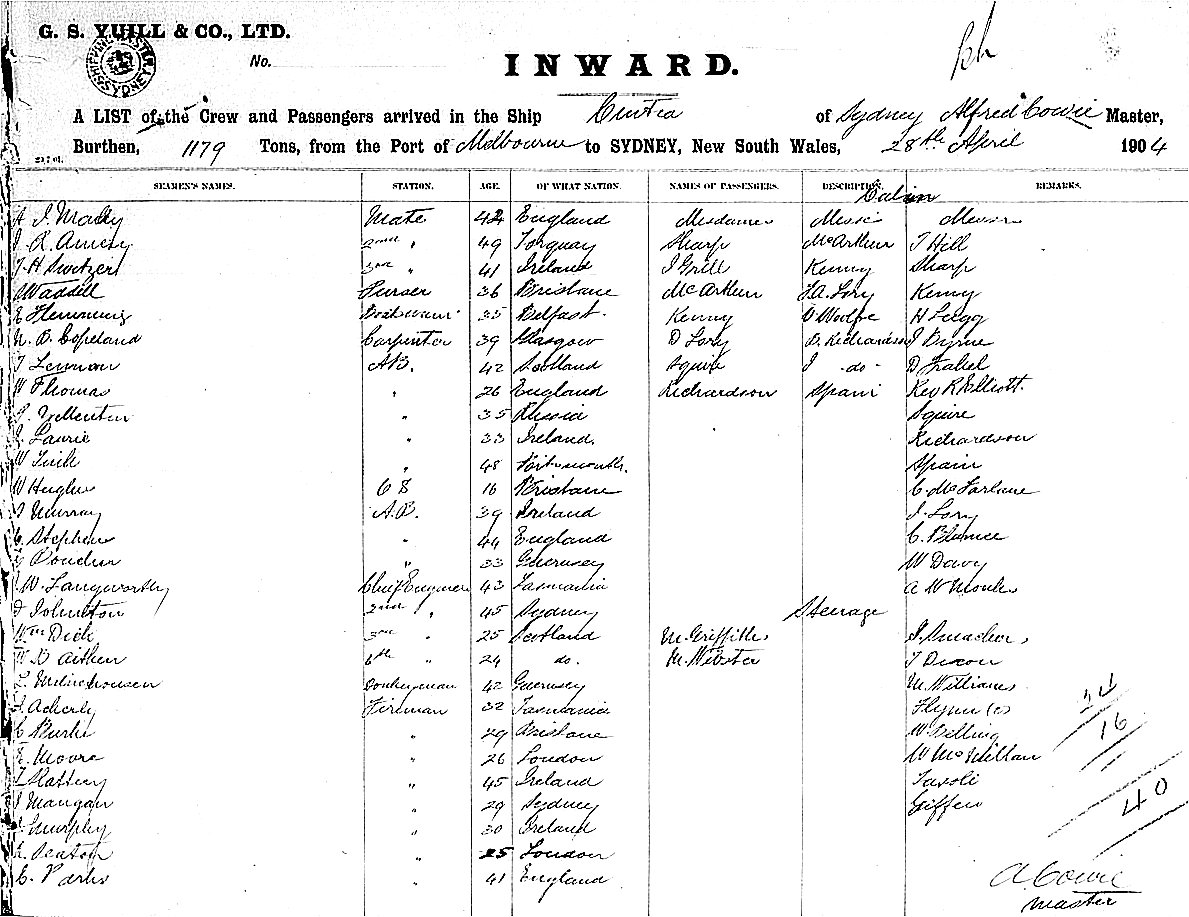 G. S. YUILL & CO., LTD.
SHIPPING MASTER SYDNEY
No.
INWARD.
A LIST of the Crew and Passengers arrived in the Ship of Sydney Alfred Cowie Master,
Burthen, 1179 Tons, from the Port of Melbourne to SYDNEY, New South Wales, 28th April 1904
SEAMEN'S NAMES. STATION. AGE. OF WHAT NATION. NAMES OF PASSENGERS. DESCRIPTION. REMARKS.
Cabin
Mate 42 England Mesdames Messrs
2nd " 49 Torquay Sharp McArthur J Hill
3rd " 41 Ireland J Grill Kenny Sharp
Waddell Purser 36 Brisbane McArthur Kenny
E Hemming Boatswain 35 Belfast. Kenny H Legg
N. B. Copeland Carpenter 39 Glasgow D Lory D. Richardson J Byrne
T Lennon A.B. 42 Scotland Squire J -do-
W Thomas " 26 England Richardson Spain Rev R Elliott
" 35 Russia Squire
J. Laurie " 33 Ireland. Richardson
W " 48 Portsmouth. Spain
W Hughes 16 Brisbane C. McFarlane
J Murray A.B. 39 Ireland J. Lory
C. Stephen " 44 England C.
" 33 Guernsey W Davy
J W. Langworthy Chief Engineer 43 Tasmania A W
D Johnston 2nd " 45 Sydney Steerage
Wm Dick 3rd " 25 Scotland M. Griffiths
W. D Aitken 4th " 24 do. M. Webster T Dixon
Donkeyman 42 Guernsey M. Williams
J. Acherly Fireman 32 Tasmania Flynn (s)
C Burke " 29 Brisbane W.
E. Moore " 26 London W McMillan
T Slattery " 45 Ireland
J Mangan " 29 Sydney Giffen
J. Murphy " 30 Ireland
Seaton " 25 London
E. Parks " 41 England
24
16
40
A Cowie
Master